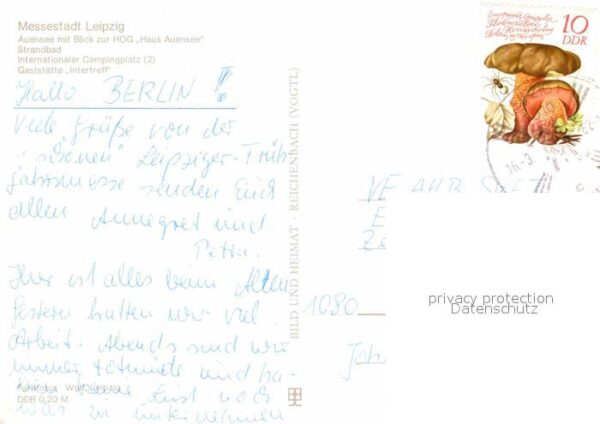 Messestadt Leipzig
Auensee mit Blick zur HOG „Haus Auensee"
Strandbad
Internationaler Campingplatz (2)
Gaststätte „Intertreff"
Hallo BERLIN !
Viele Grüße von der
"schönen" Leipziger-Früh-
jahrsmesse senden Euch
allen Annegret und
Petra.
Hier ist alles beim Alten
gestern hatten wir viel
Arbeit. Abends sind wir
immer todmüde und ha-
keine Lust noch
was zu unternehmen
Wolf, Leipzig
DDR 0,20 M
BILD UND HEIMAT · REICHENBACH (VOGTL)
10
DDR
VE AHR
1080
Joh
privacy protection
Datenschutz